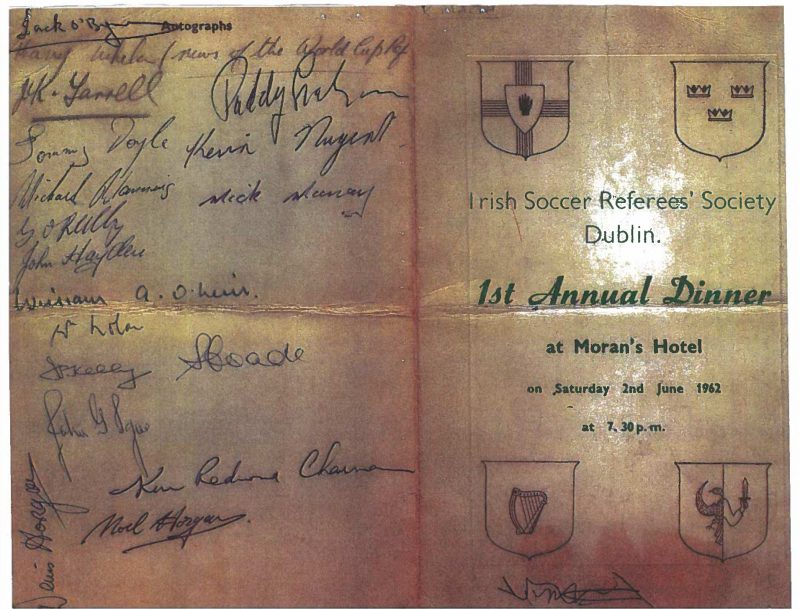 Jack O'Byrne Autographs
Harry Whelan / news of the World Cup Ref
J.K. Farrell
Paddy Graham
Tommy Doyle Kevin Nugent.
Michael Mick Murray
G O'Reilly
John Hayden
William a. O'
Kelly S Coade
John G
Ken Redmond Chairman
Noel Horgan.
Denis Horgan
Irish Soccer Referees' Society
Dublin.
1st Annual Dinner
at Moran's Hotel
on Saturday 2nd June 1962
at 7.30 p.m.